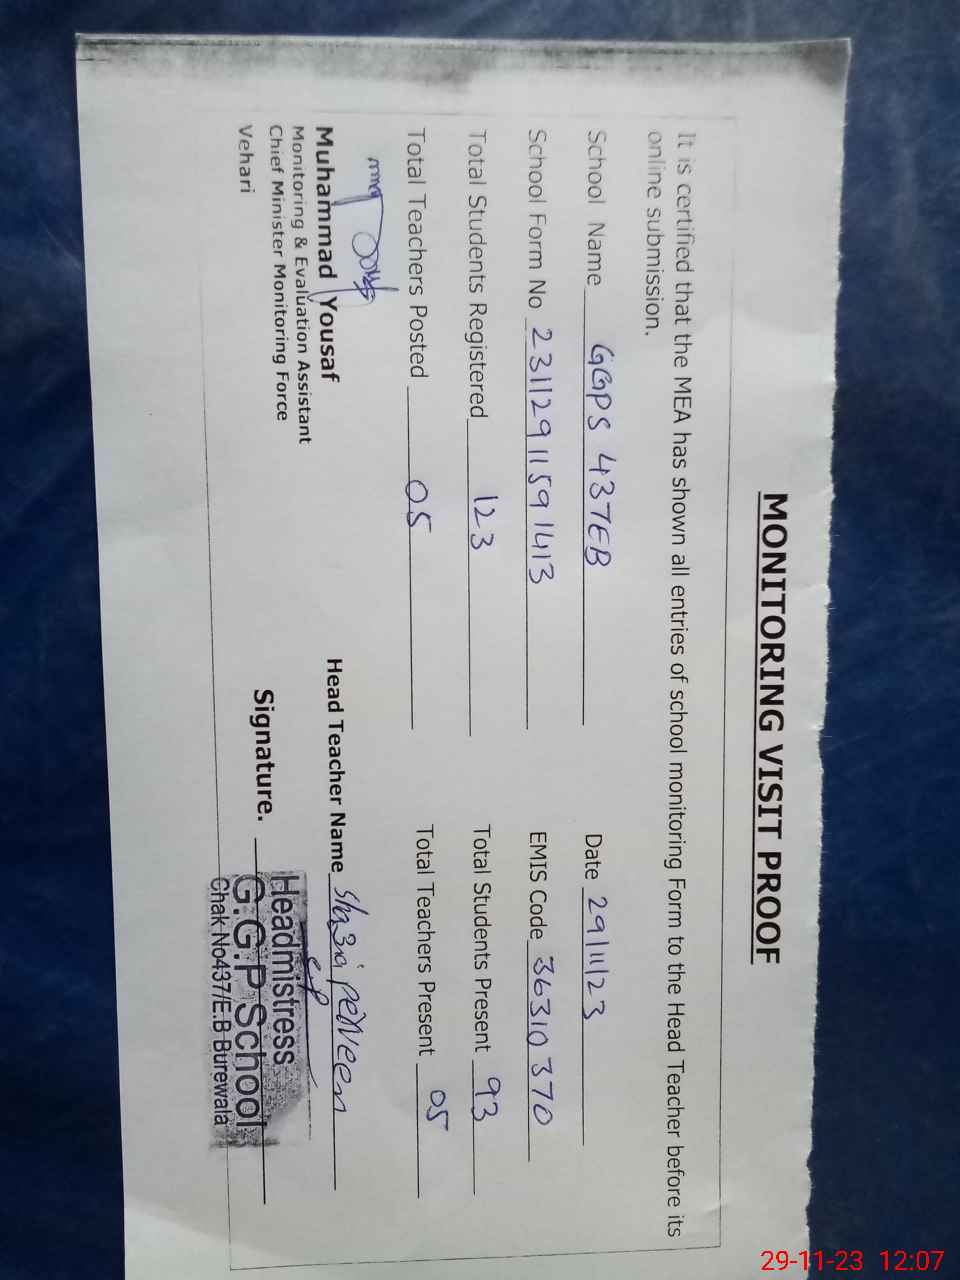 MONITORING VISIT PROOF
It is certified that the MEA has shown all entries of school monitoring Form to the Head Teacher before its
online submission.
School Name GGPS 437EB Date 29/11/23
School Form No 23112911591413 EMIS Code 36310370
Total Students Registered 123 Total Students Present 93
Total Teachers Posted 05 Total Teachers Present 05
Muhammad Yousaf
Monitoring & Evaluation Assistant
Chief Minister Monitoring Force
Vehari
Head Teacher Name Shazia perveen
Signature.
Headmistress
G.G.P School
Chak No437/E.B Burewala
29-11-23 12:07